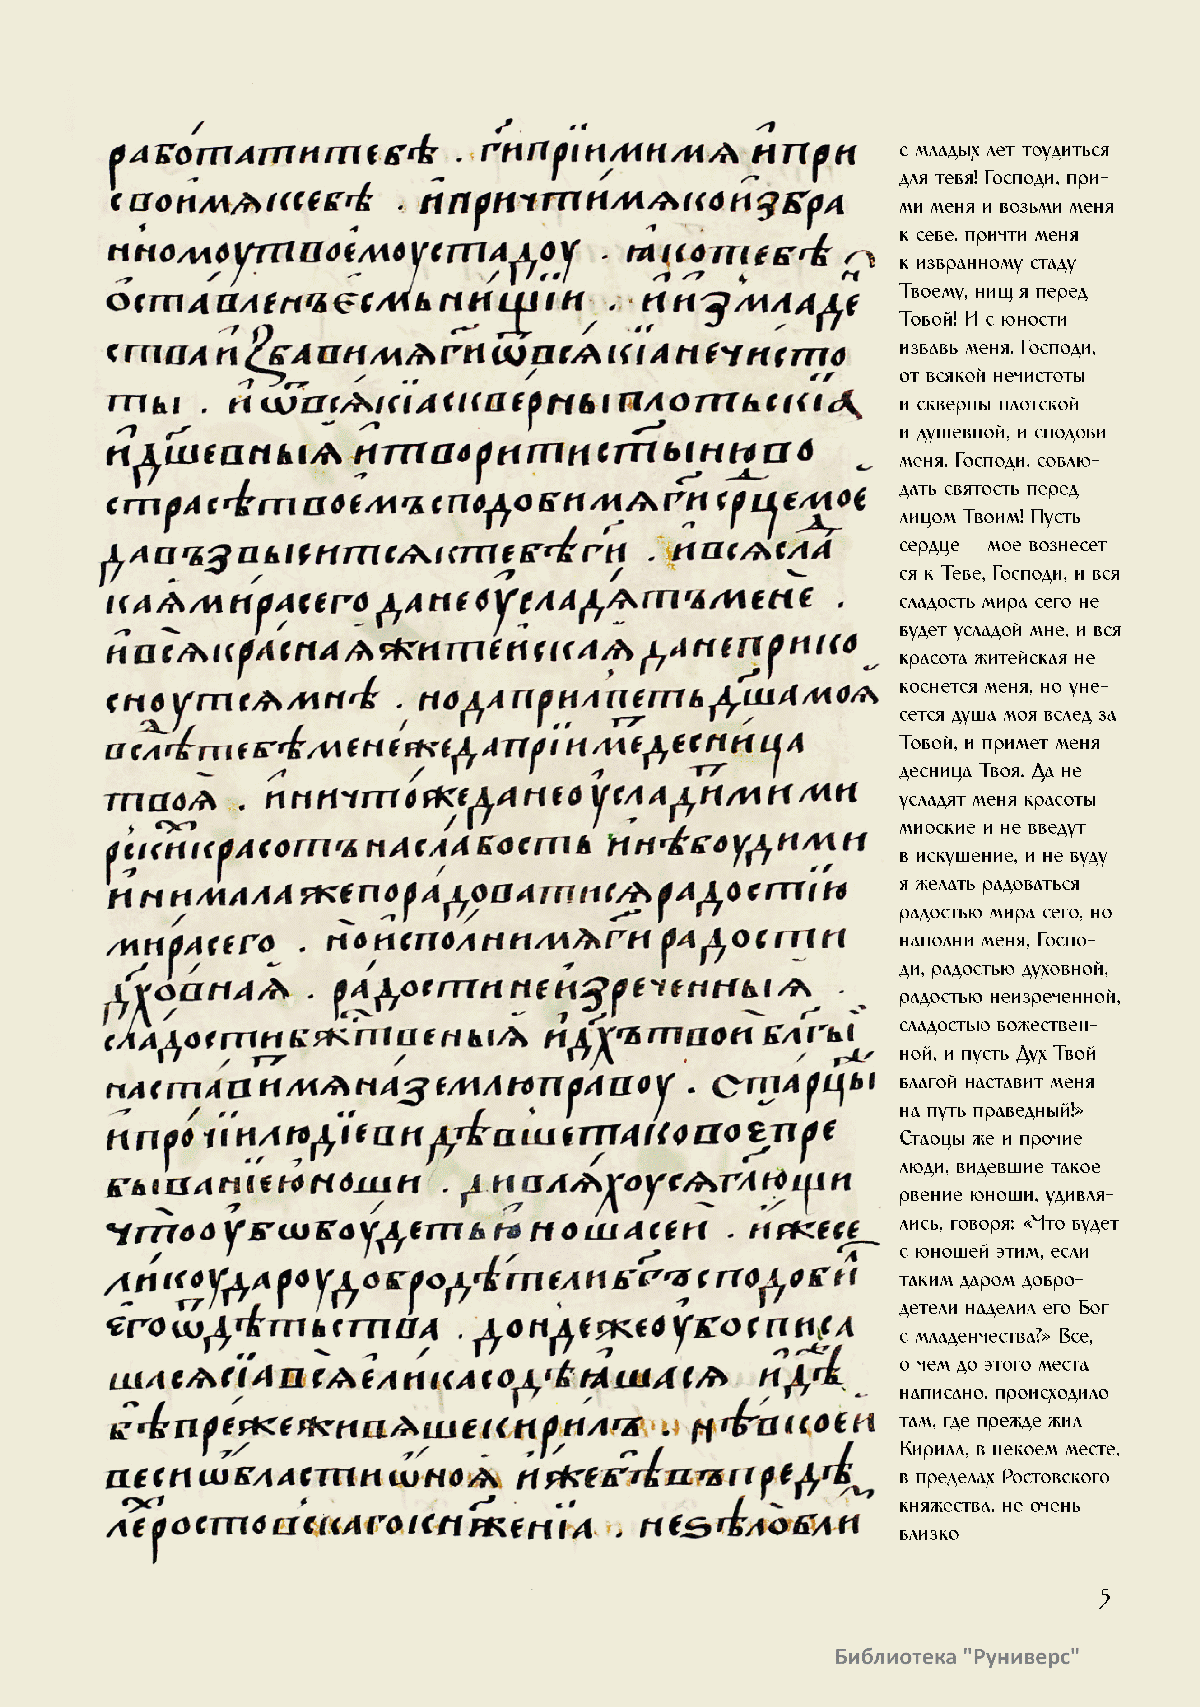 работатитебѣ . ги҃прїимимѧ ипри
своимѧксебѣ . ипричтимѧкоизбра
нномоутвоемоустадоу . ꙗкотебѣ
оставленъєсмьнищїи . иизмладе
стваиꙁбавимѧги҃ѿвсѧкїанечисто
ты . иѿвсѧкїаскверныплотьскїꙗ
идш҃евныѧитворитист҃ыньво
страсѣтвоемъсподобимѧги҃ср҃цемое
давъзвыситсѧктебѣги҃ . ивсѧслад
каѧмирасегоданеоусладѧтъмене .
ивсѧкраснаѧжитейскаѧданеприко
сноутсѧмнѣ . нодаприлпетьдш҃амоѧ
вслѣтебѣменежедапрїимедесница
твоѧ . иничтожеданеоусладимими
рскихкрасотънаслабость инѣбоудими
инималажепорадоватисѧрадостїю
мирасего . ноисполнимѧги҃радости
дх҃овнаѧ . радостинеизреченныѧ .
сладостибжт҃веныѧ идх҃ътвойблг҃ы
наставимѧназемлюправоу . Старцы
ипрочїилюдїевидѣвшетаковоєпре
быванїеюноши . дивлѧхоусѧгл҃ющи
чтооубѡбоудетьюношасей . ижесе
ликоудароудобродѣтелибг҃ъсподоби
єгоѿдѣтьства . дондежеоубосписа
шасѧсїавсѧеликасодѣꙗшасѧ идѣ
бѣпрежеживѧшекирилъ . нѣвкоеи
весиѡбластиѡноѧ ижебѣвъпредѣ
лехростовскагокнѧженїа . неѕѣлобли
с младых лет тоудиться
для тебя! Господи, при-
ми меня и возьми меня
к себе, причти меня
к избранному стаду
Твоему, нищ я перед
Тобой! И с юности
избавь меня, Господи,
от всякой нечистоты
и скверны плотской
и душевной, и сподоби
меня, Господи, соблю-
дать святость перед
лицом Твоим! Пусть
сердце мое вознесет
ся к Тебе, Господи, и вся
сладость мира сего не
будет усладой мне, и вся
красота житейская не
коснется меня, но уне-
сется душа моя вслед за
Тобой, и примет меня
десница Твоя. Да не
усладят меня красоты
миоские и не введут
в искушение, и не буду
я желать радоваться
радостью мира сего, но
наполни меня, Госпо-
ди, радостью духовной,
радостью неизреченной,
сладостью божествен-
ной, и пусть Дух Твой
благой наставит меня
на путь праведный!»
Стаоцы же и прочие
люди, видевшие такое
рвение юноши, удивля-
лись, говоря: «Что будет
с юношей этим, если
таким даром добро-
детели наделил его Бог
с младенчества?» Все,
о чем до этого места
написано, происходило
там, где прежде жил
Кирилл, в некоем месте,
в пределах Ростовского
княжества, не очень
близко
5
Библиотека "Руниверс"